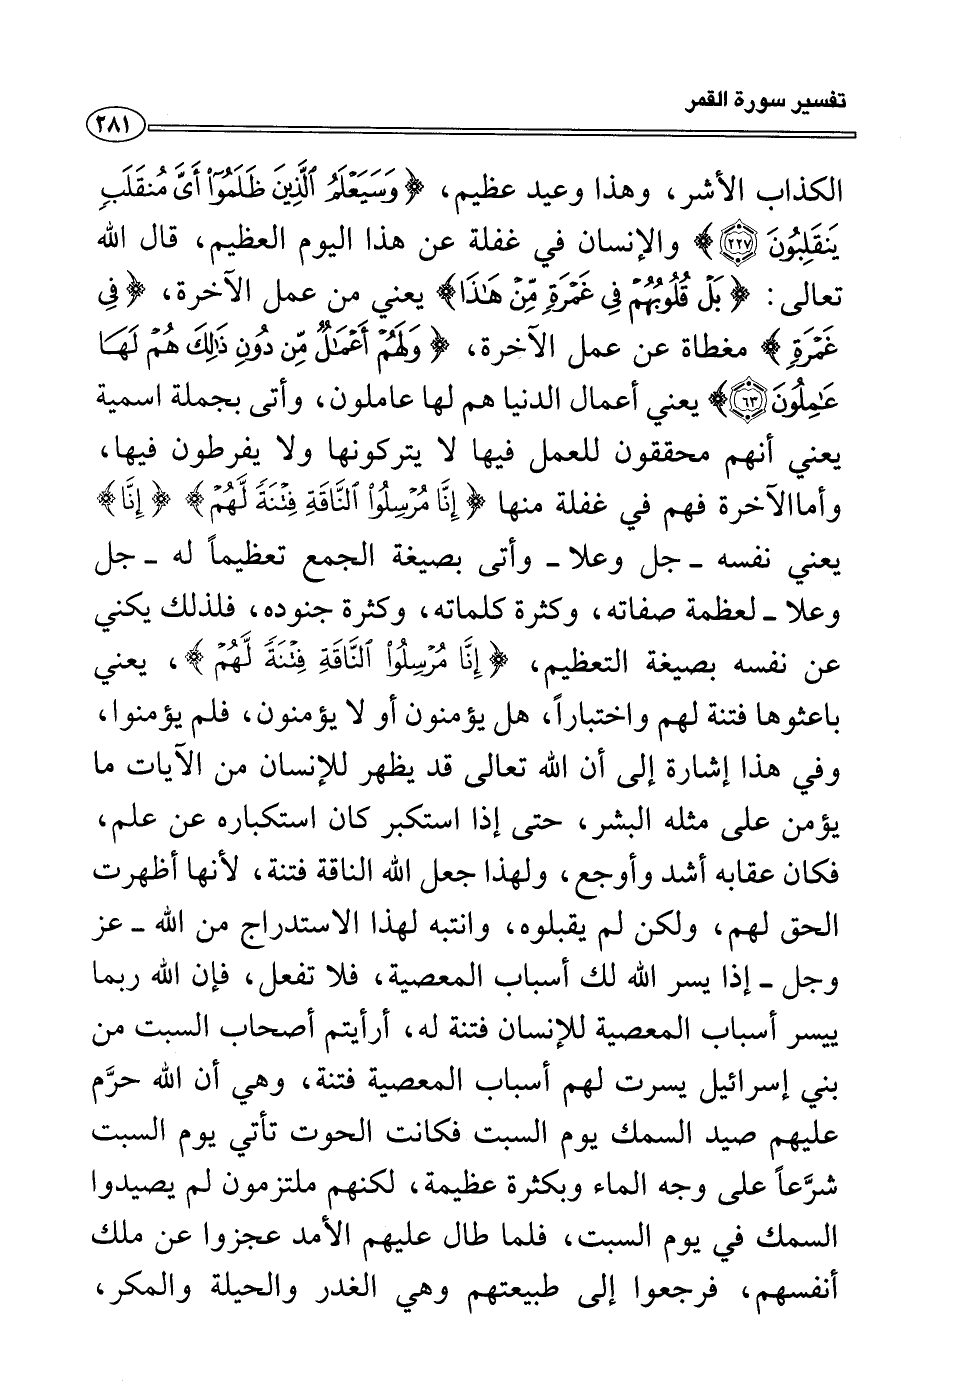 تفسير سورة القمر
٢٨١
الكذاب الأشر، وهذا وعيد عظيم، ﴿ وَسَيَعْلَمُ ٱلَّذِينَ ظَلَمُوٓا۟ أَىَّ مُنقَلَبٍ
يَنقَلِبُونَ ٢٢٧ ﴾ والإنسان في غفلة عن هذا اليوم العظيم، قال الله
تعالى: ﴿ بَلْ قُلُوبُهُمْ فِى غَمْرَةٍ مِّنْ هَٰذَا ﴾ يعني من عمل الآخرة، ﴿ فِى
غَمْرَةٍ ﴾ مغطاة عن عمل الآخرة، ﴿ وَلَهُمْ أَعْمَٰلٌ مِّن دُونِ ذَٰلِكَ هُمْ لَهَا
عَٰمِلُونَ ٦٣ ﴾ يعني أعمال الدنيا هم لها عاملون، وأتى بجملة اسمية
يعني أنهم محققون للعمل فيها لا يتركونها ولا يفرطون فيها،
وأماالآخرة فهم في غفلة منها ﴿ إِنَّا مُرْسِلُوا۟ ٱلنَّاقَةِ فِتْنَةً لَّهُمْ ﴾ ﴿ إِنَّا ﴾
يعني نفسه ـ جل وعلا ـ وأتى بصيغة الجمع تعظيماً له ـ جل
وعلا ـ لعظمة صفاته، وكثرة كلماته، وكثرة جنوده، فلذلك يكني
عن نفسه بصيغة التعظيم، ﴿ إِنَّا مُرْسِلُوا۟ ٱلنَّاقَةِ فِتْنَةً لَّهُمْ ﴾، يعني
باعثوها فتنة لهم واختباراً، هل يؤمنون أو لا يؤمنون، فلم يؤمنوا،
وفي هذا إشارة إلى أن الله تعالى قد يظهر للإنسان من الآيات ما
يؤمن على مثله البشر، حتى إذا استكبر كان استكباره عن علم،
فكان عقابه أشد وأوجع، ولهذا جعل الله الناقة فتنة، لأنها أظهرت
الحق لهم، ولكن لم يقبلوه، وانتبه لهذا الاستدراج من الله ـ عز
وجل ـ إذا يسر الله لك أسباب المعصية، فلا تفعل، فإن الله ربما
ييسر أسباب المعصية للإنسان فتنة له، أرأيتم أصحاب السبت من
بني إسرائيل يسرت لهم أسباب المعصية فتنة، وهي أن الله حرَّم
عليهم صيد السمك يوم السبت فكانت الحوت تأتي يوم السبت
شرَّعاً على وجه الماء وبكثرة عظيمة، لكنهم ملتزمون لم يصيدوا
السمك في يوم السبت، فلما طال عليهم الأمد عجزوا عن ملك
أنفسهم، فرجعوا إلى طبيعتهم وهي الغدر والحيلة والمكر،